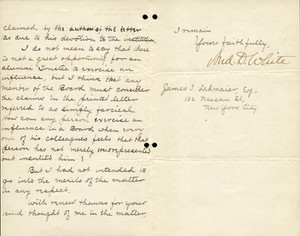 claimed by the author of the letter
as due to his devotion to the institution.
I do not mean to say that there
is not a great opportunity for an
alumni Trustee to exercise an
influence, but I think that any
member of the Board must consider
the claims in the private letter
referred to as simply farcical.
How can any person exercise an
influence in a Board when every
one of his colleagues feels that that
person has not merely misrepresented
but insulted him?
But I had not intended to
go into the merits of the matter
in any respect.
With renewed thanks for your
kind thought of me in the matter,
I remain
Yours faithfully,
And. D. White
James S. Lehmaier, Esq.
132 Nassau St,
New York City.